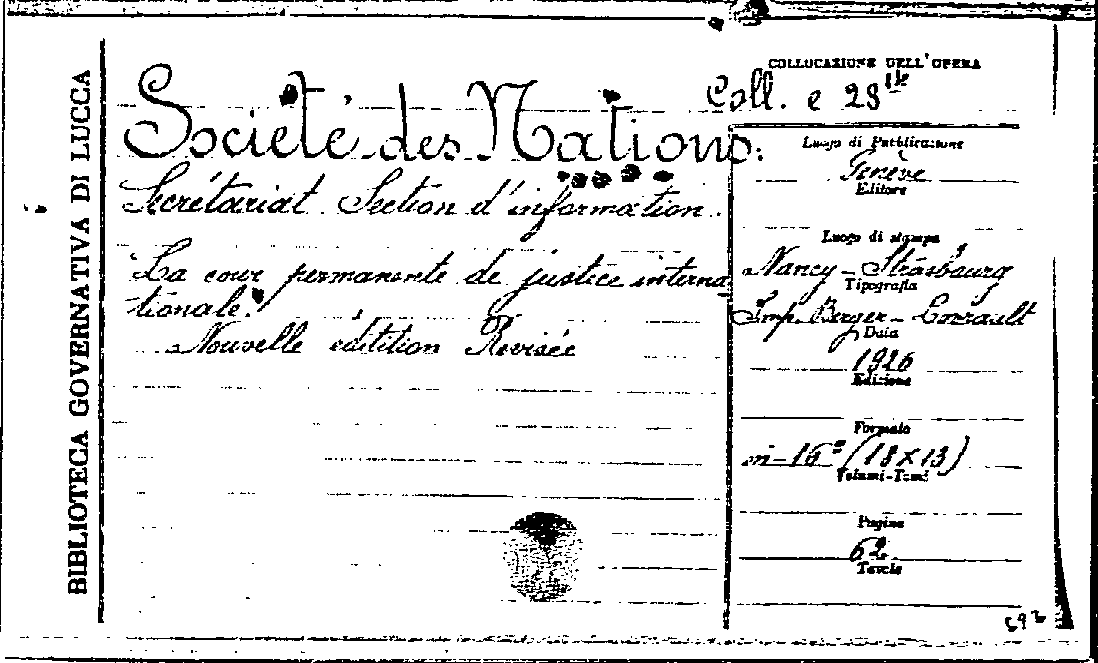 BIBLIOTECA GOVERNATIVA DI LUCCA
Société des Nations.
Secrétariat. Section d'information.
La cour permanente de justice interna
tionale.
Nouvelle édition Revisée
COLLOCAZIONE DELL'OPERA
Coll. e 28
Luogo di Pubblicazione
Genève
Editore
Luogo di stampa
Nancy-Strasbourg
Tipografia
Imp. Berger-
Data
1926
Edizione
Formato
in-16° (18x13)
Volumi-Tomi
Pagine
62
Tavole